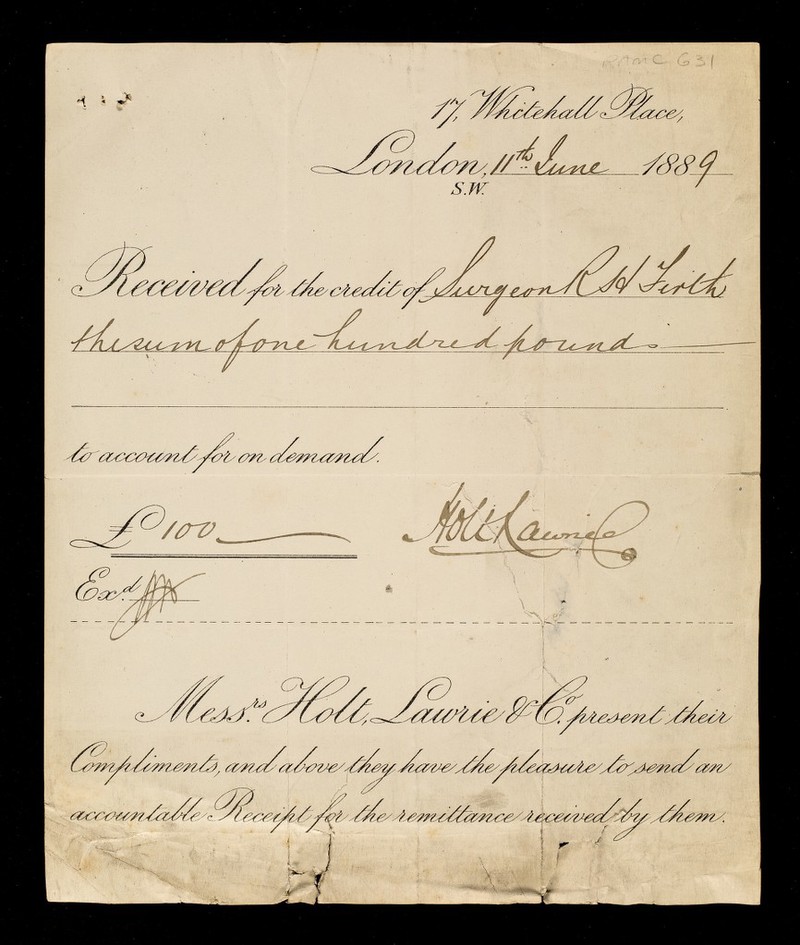 RAMC 631
17, Whitehall Place,
London, 11th June 1889
S.W.
Received for the credit of Surgeon R H Firth
the sum of one hundred pounds
to account for on demand.
£100
Holt Lawrie & Co
Exd.
Messrs. Holt, Lawrie & Co. present their
Compliments, and above they have the pleasure to send an
accountable Receipt for the remittance received by them.